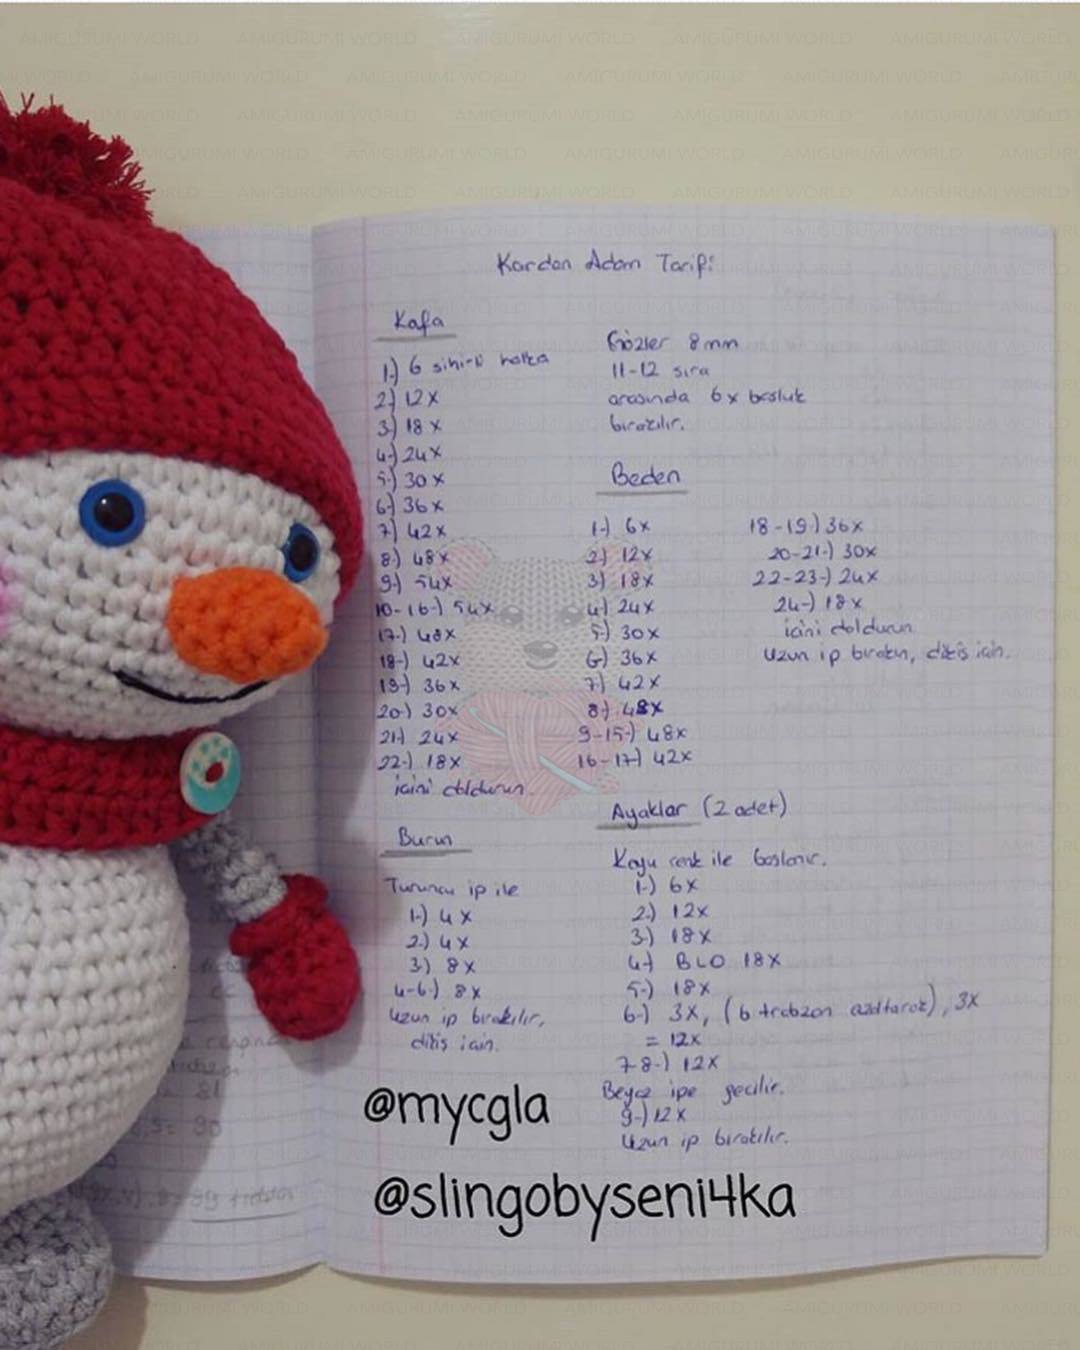 Kardan Adam Tarifi
Kafa
1-) 6 sihirli halka
2-) 12x
3-) 18x
4-) 24x
5-) 30x
6-) 36x
7-) 42x
8-) 48x
9-) 54x
10-16-) 54x
17-) 48x
18-) 42x
19-) 36x
20-) 30x
21-) 24x
22-) 18x
içini doldurun.
Burun
Turuncu ip ile
1-) 4x
2-) 4x
3-) 8x
4-6-) 8x
Uzun ip bırakılır,
dikiş için.
Gözler 8mm
11-12 sıra
arasında 6x boşluk
bırakılır.
Beden
1-) 6x
2-) 12x
3-) 18x
4-) 24x
5-) 30x
6-) 36x
7-) 42x
8-) 48x
9-15-) 48x
16-17-) 42x
18-19-) 36x
20-21-) 30x
22-23-) 24x
24-) 18x
içini doldurun
Uzun ip bırakın, dikiş için.
Ayaklar (2 adet)
Koyu renk ile başlanır.
1-) 6x
2-) 12x
3-) 18x
4-) BLO 18x
5-) 18x
6-) 3x, (6 trabzan azaltarak), 3x
= 12x
7-8-) 12x
Beyaz ipe geçilir.
9-) 12x
Uzun ip bırakılır.
@mycgla
@slingobyseni4ka
AMIGURUMI WORLD